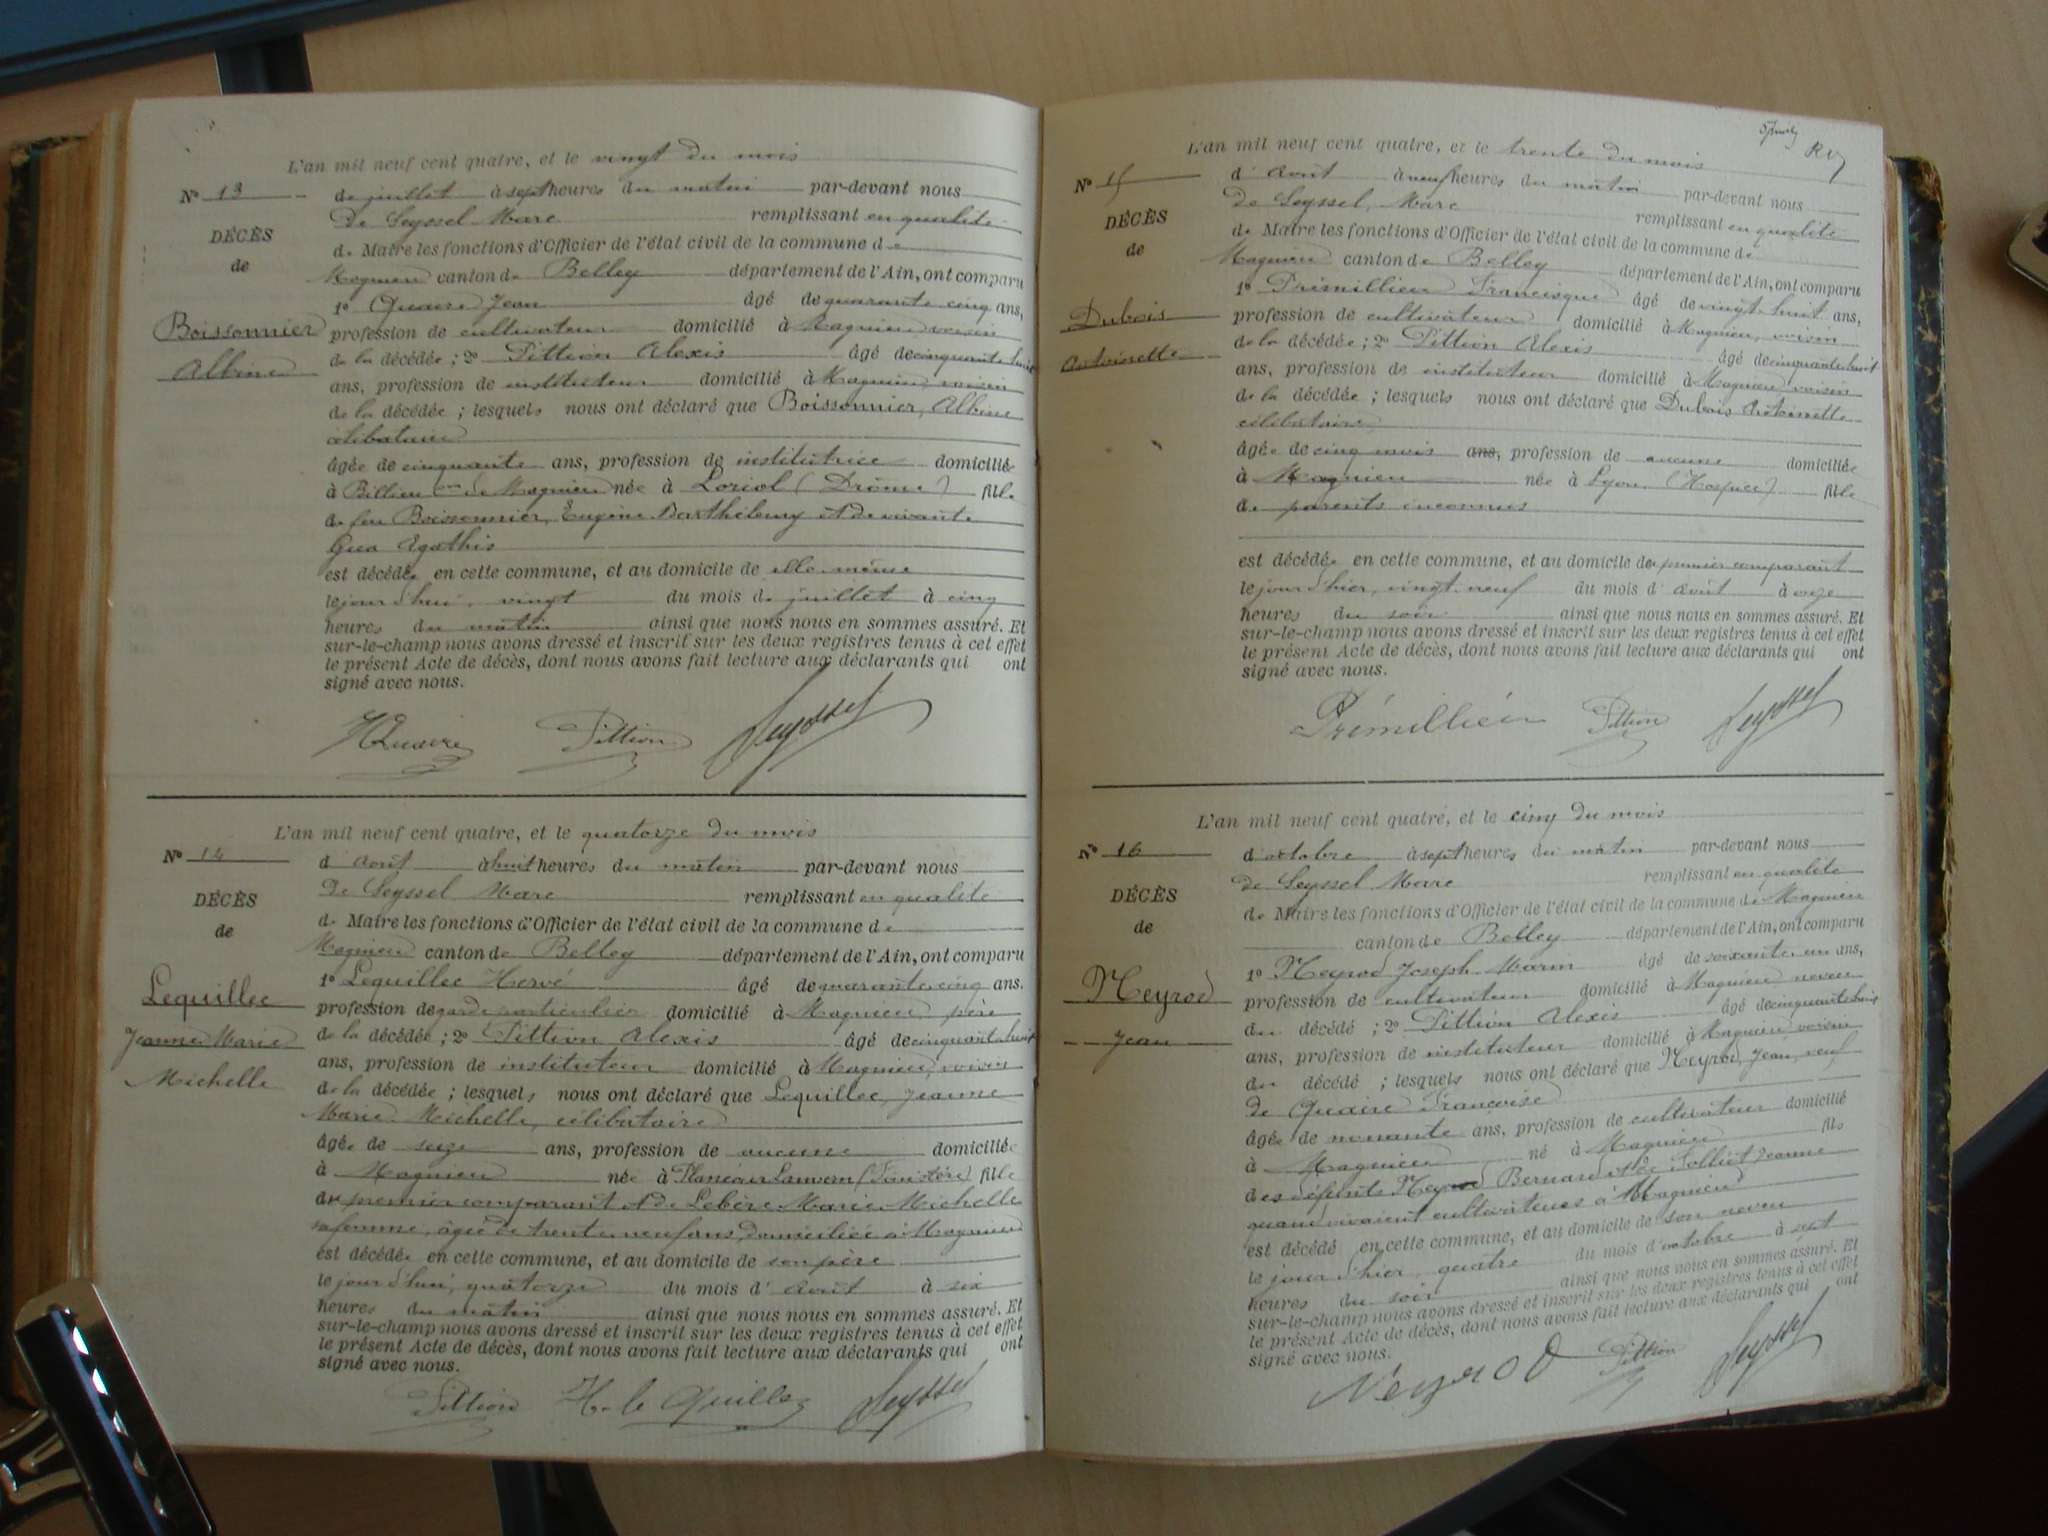 L'an mil neuf cent quatre, et le vingt du mois
N° 13
de juillet à sept heures du matin par-devant nous
De Seyssel Marc remplissant en qualité
de Maire les fonctions d'Officier de l'état civil de la commune de
Magnieu canton de Belley département de l'Ain, ont comparu
1° Quaire Jean âgé de quarante cinq ans,
profession de cultivateur domicilié à Magnieu voisin
de la décédée ; 2° Pittion Alexis âgé de cinquante huit
ans, profession de instituteur domicilié à Magnieu voisin
de la décédée ; lesquels nous ont déclaré que Boissonnier, Albine
célibataire
âgée de cinquante ans, profession de institutrice domiciliée
à Billieu con de Magnieu née à Loriol (Drôme) fille
de feu Boissonnier, Eugène Barthélemy et de vivante
Agathis
est décédée en cette commune, et au domicile de elle-même
le jour d'hui, vingt du mois de juillet à cinq
heures du matin ainsi que nous nous en sommes assuré. Et
sur-le-champ nous avons dressé et inscrit sur les deux registres tenus à cet effet
le présent Acte de décès, dont nous avons fait lecture aux déclarants qui ont
signé avec nous.
DÉCÈS
de
Boissonnier
Albine
Quaire Pittion Seyssel
L'an mil neuf cent quatre, et le quatorze du mois
N° 14
d'Août à huit heures du matin par-devant nous
De Seyssel Marc remplissant en qualité
de Maire les fonctions d'Officier de l'état civil de la commune de
Magnieu canton de Belley département de l'Ain, ont comparu
1° Lequillec Hervé âgé de quarante cinq ans.
profession de garde particulier domicilié à Magnieu père
de la décédée ; 2° Pittion Alexis âgé de cinquante huit
ans, profession de instituteur domicilié à Magnieu, voisin
de la décédée ; lesquels nous ont déclaré que Lequillec, Jeanne
Marie Michelle, célibataire
âgée de seize ans, profession de aucune domiciliée
à Magnieu née à Lanvern (Finistère) fille
du premier comparant et de Lebère Marie Michelle
sa femme, âgée de trente neuf ans, domiciliée à Magnieu
est décédée en cette commune, et au domicile de son père
le jour d'hui, quatorze du mois d'Août à six
heures du matin ainsi que nous nous en sommes assuré. Et
sur-le-champ nous avons dressé et inscrit sur les deux registres tenus à cet effet
le présent Acte de décès, dont nous avons fait lecture aux déclarants qui ont
signé avec nous.
DÉCÈS
de
Lequillec
Jeanne Marie
Michelle
Pittion H. le Quillec Seyssel
L'an mil neuf cent quatre, et le trente du mois
N° 15
d'Août à neuf heures du matin par-devant nous
De Seyssel, Marc remplissant en qualité
de Maire les fonctions d'Officier de l'état civil de la commune de
Magnieu canton de Belley département de l'Ain, ont comparu
1° Primillieu Francisque âgé de vingt-huit ans,
profession de cultivateur domicilié à Magnieu, voisin
de la décédée ; 2° Pittion Alexis âgé de cinquante huit
ans, profession de instituteur domicilié à Magnieu voisin
de la décédée ; lesquels nous ont déclaré que Dubois Antoinette
célibataire
âgée de cinq mois ans, profession de aucune domiciliée
à Magnieu née à Lyon (Hospice) fille
de parents inconnus
est décédée en cette commune, et au domicile du premier comparant
le jour d'hier, vingt-neuf du mois d'Août à onze
heures du soir ainsi que nous nous en sommes assuré. Et
sur-le-champ nous avons dressé et inscrit sur les deux registres tenus à cet effet
le présent Acte de décès, dont nous avons fait lecture aux déclarants qui ont
signé avec nous.
DÉCÈS
de
Dubois
Antoinette
Prémillieu Pittion Seyssel
L'an mil neuf cent quatre, et le cinq du mois
N° 16
d'octobre à sept heures du matin par-devant nous
de Seyssel Marc remplissant en qualité
de Maire les fonctions d'Officier de l'état civil de la commune de Magnieu
canton de Belley département de l'Ain, ont comparu
1° Neyrod Joseph Marin âgé de soixante-un ans,
profession de cultivateur domicilié à Magnieu neveu
du décédé ; 2° Pittion Alexis âgé de cinquante huit
ans, profession de instituteur domicilié à Magnieu voisin
du décédé ; lesquels nous ont déclaré que Neyrod, Jean, veuf
de Quaire Françoise
âgée de nonante ans, profession de cultivateur domicilié
à Magnieu né à Magnieu fils
des défunts Neyrod Bernard et de Jeanne
quand vivaient cultivateurs à Magnieu
est décédé en cette commune, et au domicile de son neveu
le jour d'hier, quatre du mois d'octobre à sept
heures du soir ainsi que nous nous en sommes assuré. Et
sur-le-champ nous avons dressé et inscrit sur les deux registres tenus à cet effet
le présent Acte de décès, dont nous avons fait lecture aux déclarants qui ont
signé avec nous.
DÉCÈS
de
Neyrod
Jean
Neyrod Pittion Seyssel